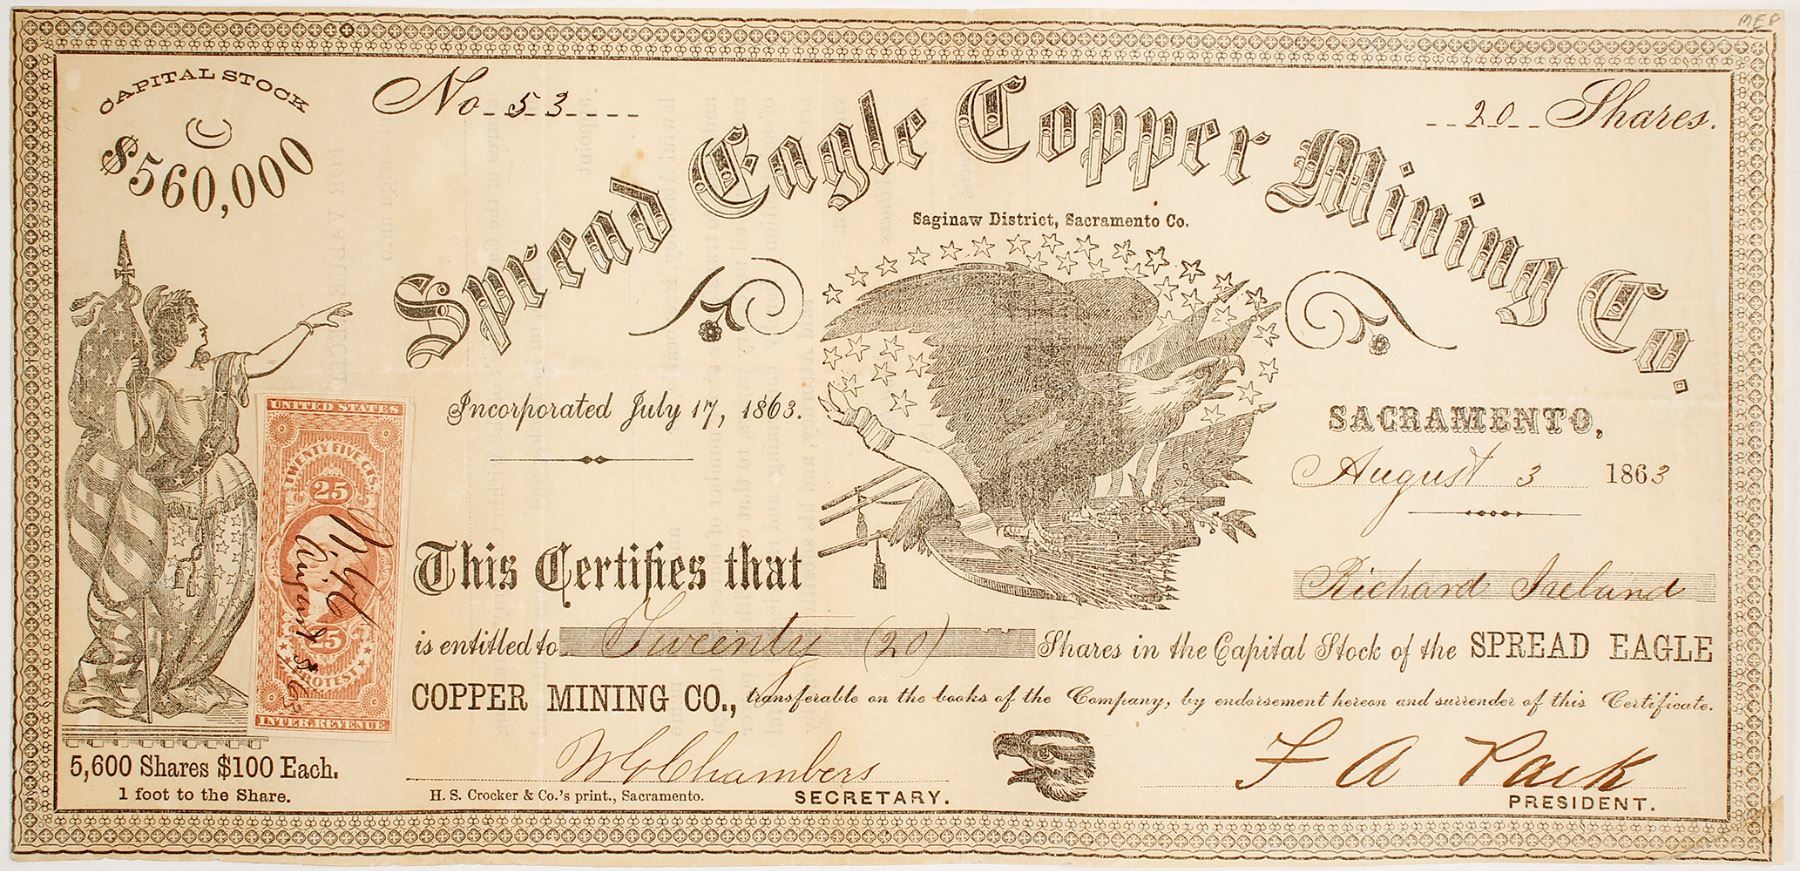 MEP
CAPITAL STOCK
$560,000
No. 53
20 Shares.
Spread Eagle Copper Mining Co.
Saginaw District, Sacramento Co.
Incorporated July 17, 1863.
SACRAMENTO,
August 3 1863
This Certifies that Richard Ireland
is entitled to Twenty (20) Shares in the Capital Stock of the SPREAD EAGLE
COPPER MINING CO., transferable on the books of the Company, by endorsement hereon and surrender of this Certificate.
UNITED STATES
TWENTY FIVE CTS.
25
25
PROTEST
INTER. REVENUE
August 3 / 63
5,600 Shares $100 Each.
1 foot to the Share.
W C Chambers
H. S. Crocker & Co.'s print., Sacramento.
SECRETARY.
F A Park
PRESIDENT.